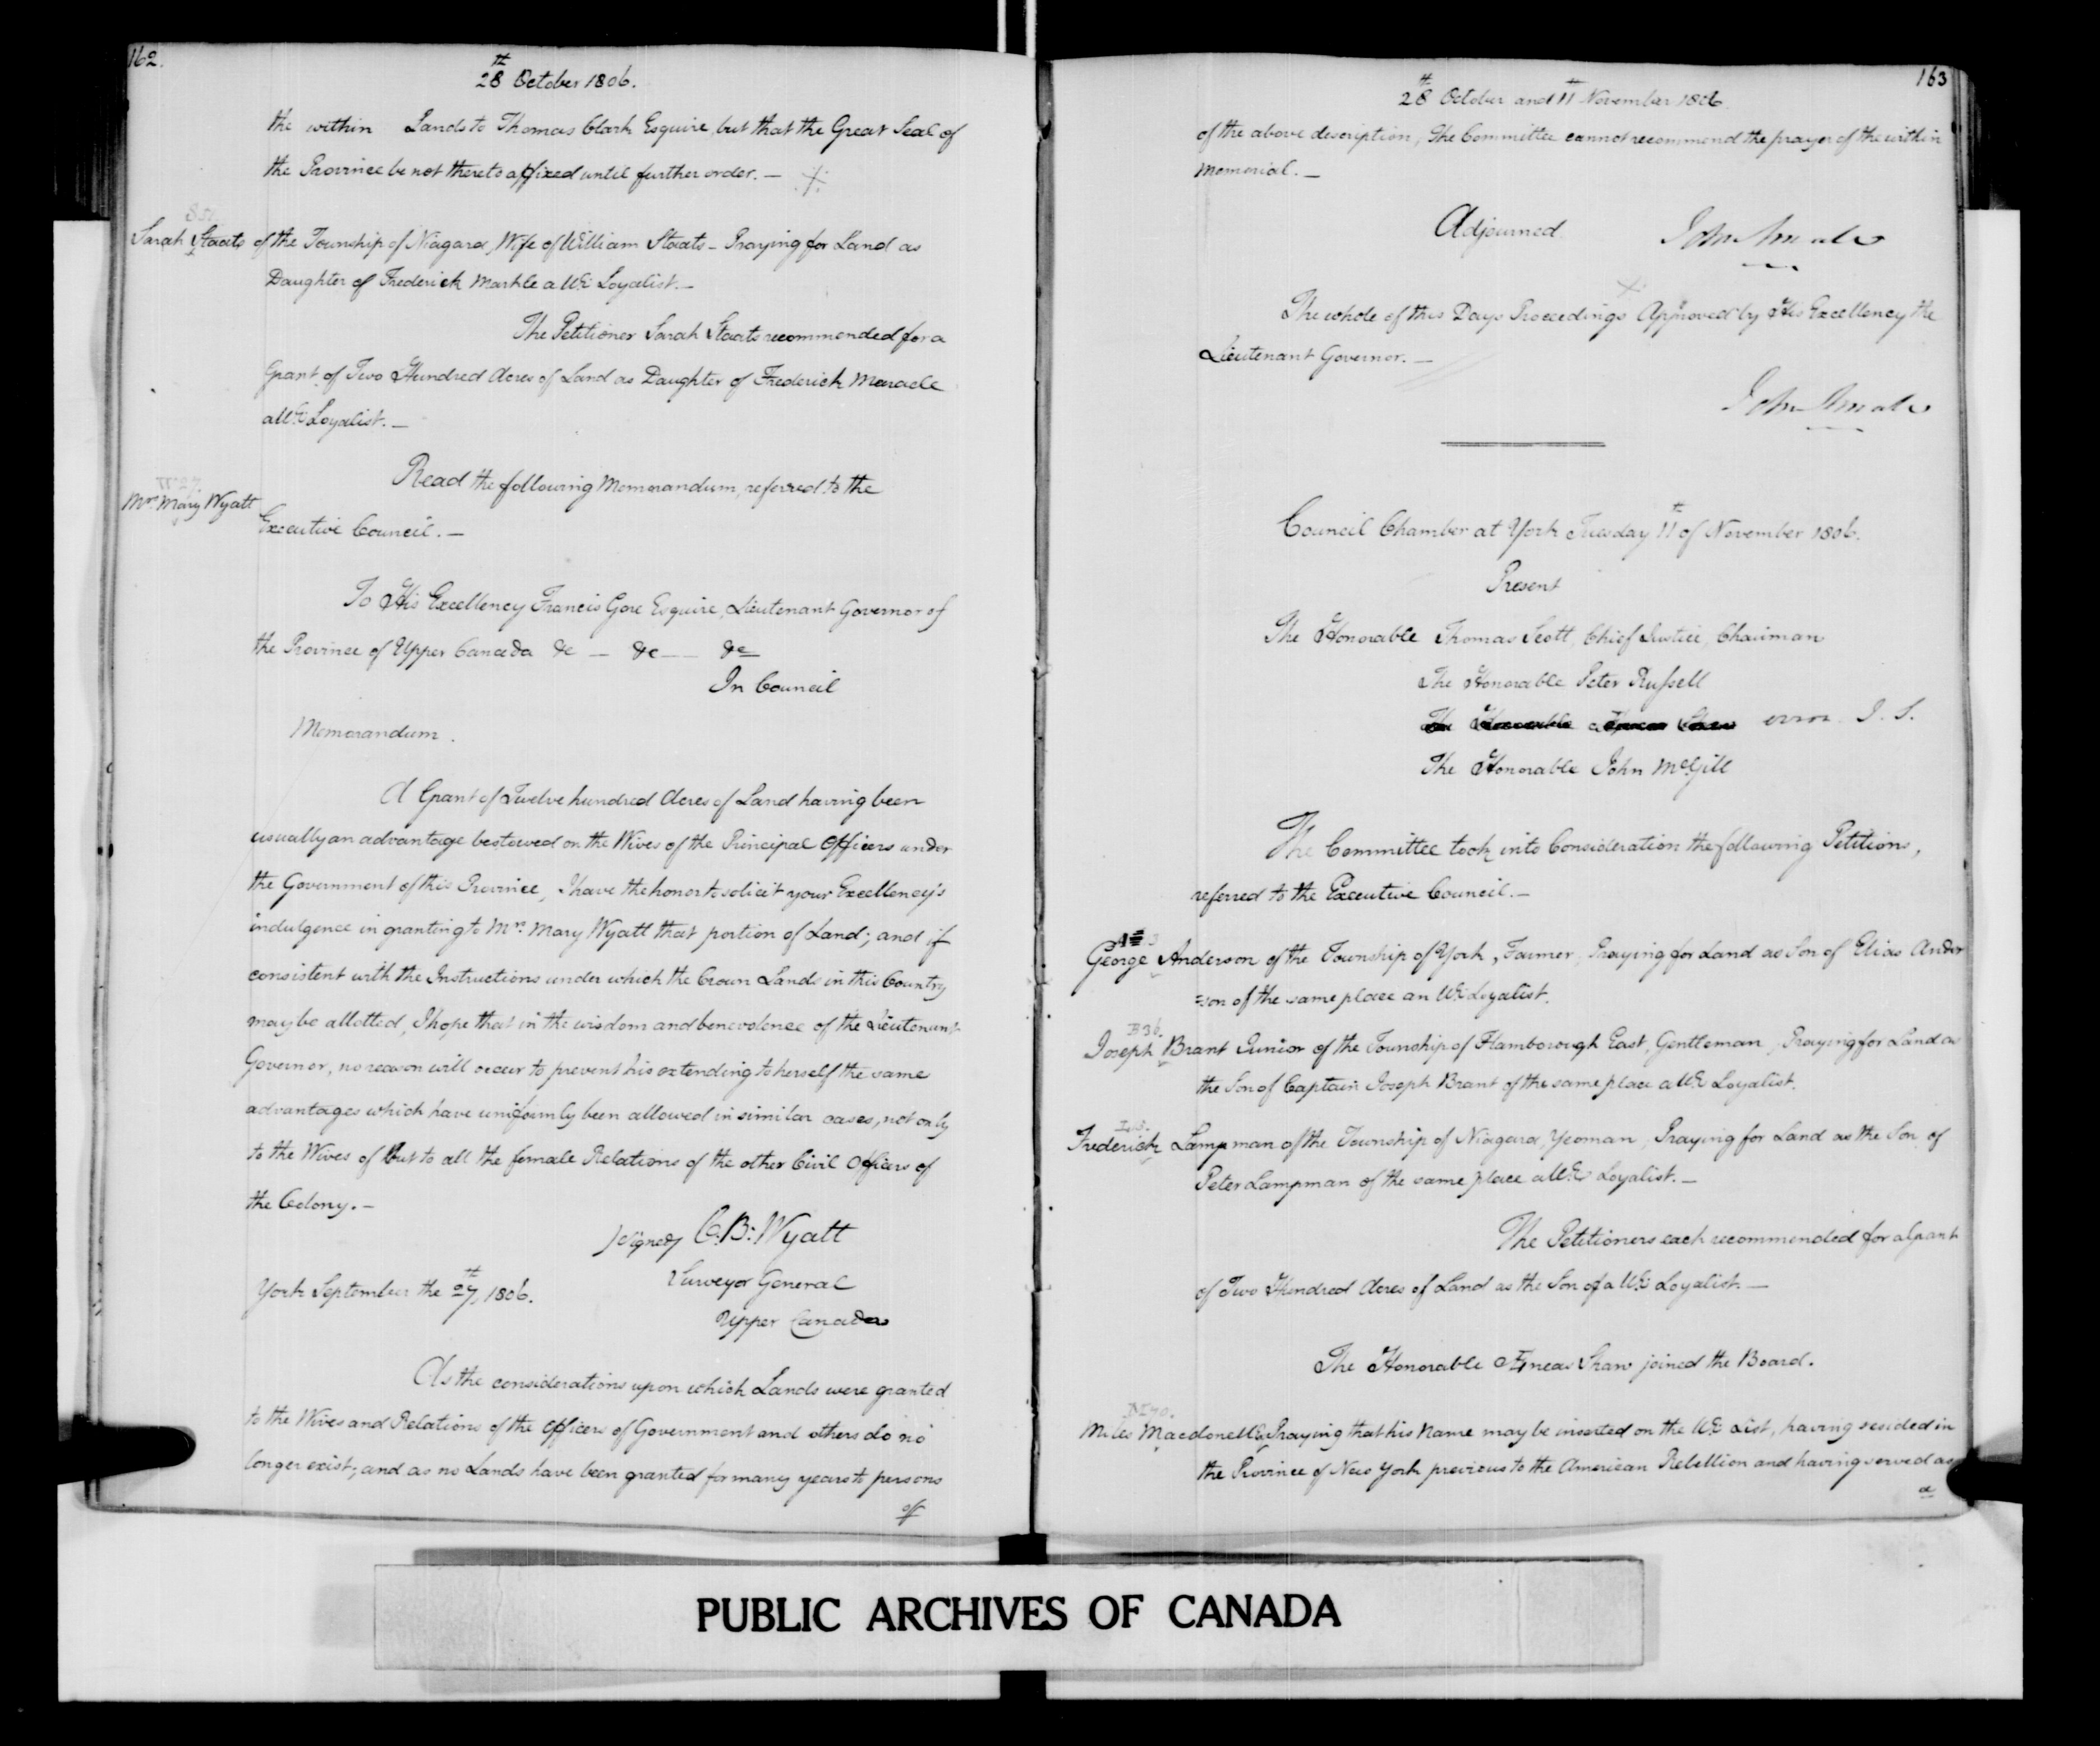 162.
28th October 1806.
the within Lands to Thomas Clark Esquire, but that the Great Seal of
the Province be not thereto affixed until further order. —
Sarah Staats of the Township of Niagara, Wife of William Staats — Praying for Land as
Daughter of Frederick Markle a UE Loyalist. —
The Petitioner Sarah Staats recommended for a
Grant of Two Hundred Acres of Land as Daughter of Frederick Maracle
a UE Loyalist. —
Read the following Memorandum, referred to the
Mrs. Mary Wyatt
Executive Council. —
To His Excellency Francis Gore Esquire, Lieutenant Governor of
the Province of Upper Canada &c — &c — &c
In Council
Memorandum.
A Grant of Twelve hundred Acres of Land having been
usually an advantage bestowed on the Wives of the Principal Officers under
the Government of this Province, I have the honor to solicit your Excellency's
indulgence in granting to Mrs. Mary Wyatt that portion of Land; and if
consistent with the Instructions under which the Crown Lands in this Country
may be allotted, I hope that in the wisdom and benevolence of the Lieutenant
Governor, no reason will occur to prevent his extending to herself the same
advantages which have uniformly been allowed in similar cases, not only
to the Wives of but to all the female Relations of the other Civil Officers of
the Colony. —
(signed) C. B. Wyatt
Surveyor General
York September the 27th, 1806.
Upper Canada
As the considerations upon which Lands were granted
to the Wives and Relations of the Officers of Government and others do no
longer exist; and as no Lands have been granted for many years to persons
of
163
28th October and 11th November 1806.
of the above description, The Committee cannot recommend the prayer of the within
Memorial. —
Adjourned. John Small
The whole of this Days Proceedings Approved by His Excellency the
Lieutenant Governor. —
John Small
Council Chamber at York Tuesday 11th of November 1806.
Present
The Honorable Thomas Scott, Chief Justice, Chairman
The Honorable Peter Russell
The Honorable Æneas Shaw error. J. S.
The Honorable John McGill
The Committee took into Consideration the following Petitions,
referred to the Executive Council. —
George Anderson of the Township of York, Farmer, Praying for Land as Son of Elias Ander
=son of the same place an UE Loyalist.
B 36.
Joseph Brant Junior of the Township of Flamborough East, Gentleman, Praying for Land as
the Son of Captain Joseph Brant of the same place a UE Loyalist.
Frederick Lampman of the Township of Niagara, Yeoman, Praying for Land as the Son of
Peter Lampman of the same place a UE Loyalist. —
The Petitioners each recommended for a Grant
of Two Hundred Acres of Land as the Son of a UE Loyalist —
The Honorable Æneas Shaw joined the Board.
Miles Macdonell, Praying that his Name may be inserted on the UE List, having resided in
the Province of New York previous to the American Rebellion and having served as
a
PUBLIC ARCHIVES OF CANADA